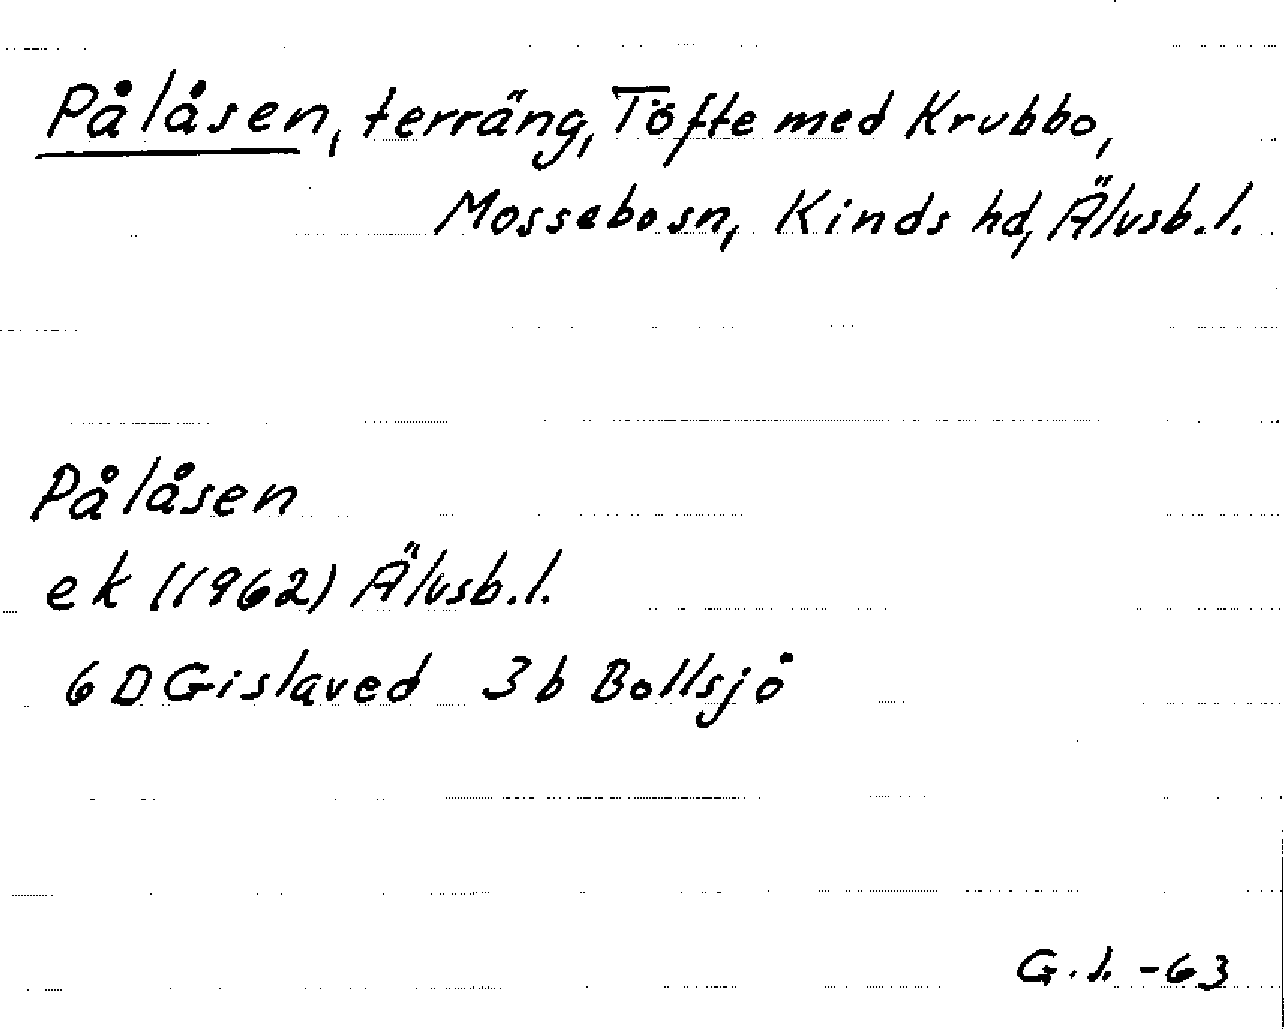 Pålåsen, terräng, Töfte med Krubbo,
Mossebo sn, Kinds hd, Älvsb. l.
Pålåsen
ek (1962) Älvsb. l.
6 D Gislaved 3 b Bollsjö
G. l. -63